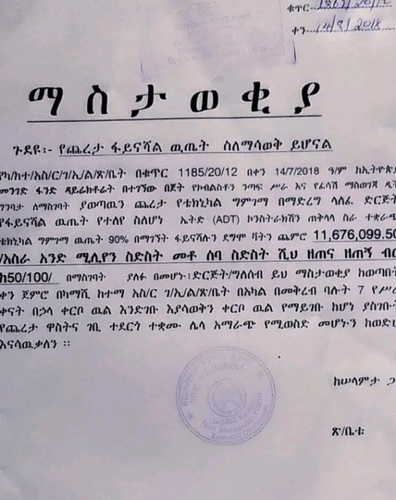 ቁጥር
ቀን 14/8/2018
ማስታወቂያ
ጉደዩ፡- የጨረታ ፋይናሻል ዉጤት ስለማሳወቅ ይሆናል
የካ/ከተ/አስ/ር/ገ/ኢ/ል/ጽ/ቤት በቁጥር 1185/20/12 በቀን 14/7/2018 ዓ/ም ከኢትዮጵያ
መንገድ ፋንድ ዳይሬክቶሬት በተገኘው በጀት የኮብልስቶን ንጣፍ ሥራ እና የፈሳሽ ማስወገጃ ዲች
ግንባታ ለማስገባት ያወጣዉን ጨረታ የቴክኒካል ግምገማ በማድረግ ላለፈ ድርጅት
የፋይናሻል ዉጤት የተለየ ስለሆነ ኤትድ (ADT) ኮንስትራክሽን ጠቅላላ ስራ ተቋራጭ
ቴክኒካል ግምገማ ዉጤት 90% በማግኘት ፋይናሻሉን ደግሞ ቫትን ጨምሮ 11,676,099.50
/አስራ አንድ ሚሊየን ስድስት መቶ ሰባ ስድስት ሺህ ዘጠና ዘጠኝ ብር
ከ50/100/ በማስገባት ያለፉ መሆኑን፡ድርጅት/ግለሰብ ይህ ማስታወቂያ ከወጣበት
ቀን ጀምሮ በካማሺ ከተማ አስ/ር ገ/ኢ/ል/ጽ/ቤት በአካል በመቅረብ ባሉት 7 የሥራ
ቀናት በኃላ ቀርቦ ዉል እንድገቡ እያላወቅን ቀርቦ ዉል የማይገቡ ከሆነ ያስገቡት
የጨረታ ዋስትና ገቢ ተደርጎ ተቋሙ ሌላ አማራጭ የሚወስድ መሆኑን ከወድሁ
እናሳዉቃለን ፡፡
ከሠላምታ ጋ
ጽ/ቤቱ